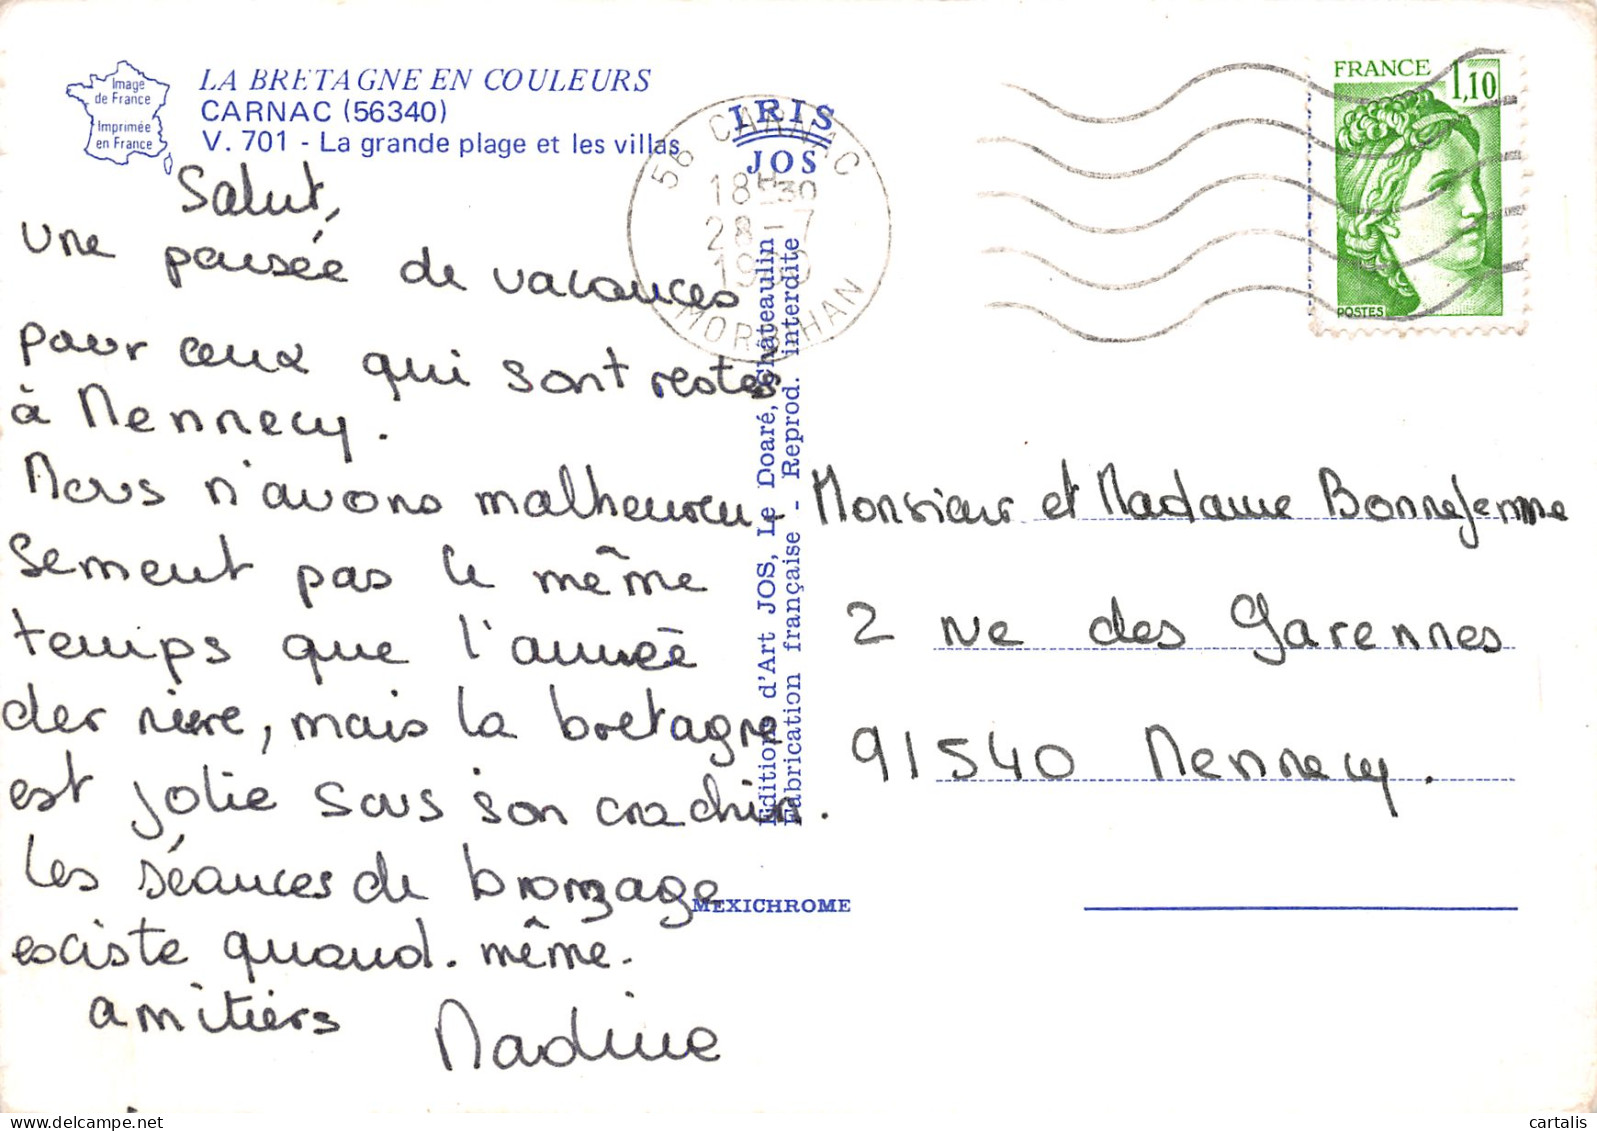 Image
de France
Imprimée
en France
LA BRETAGNE EN COULEURS
CARNAC (56340)
V. 701 - La grande plage et les villas
IRIS
JOS
56 CARNAC
18H30
28-7
1980
MORBIHAN
FRANCE 1,10
POSTES
Salut,
une pensée de vacances
pour ceux qui sont restes
à Mennecy.
Nous n'avons malheureu-
sement pas le même
temps que l'année
der nière, mais la bretagne
est jolie sous son crachin.
Les séances de bronzage
existe quand-même.
amitiers
Nadine
Editions d'Art JOS, Le Doaré, Châteaulin
Fabrication française - Reprod. interdite
MEXICHROME
Monsieur et Madame Bonnefemme
2 rue des Garennes
91540 Mennecy.
cartalis